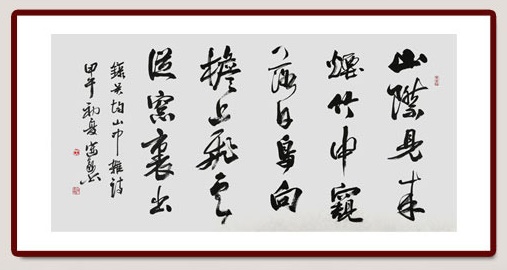 山際見来
煙竹中窺
落日鳥向
檐上飛云
從窗裏出
錄吴均山中雜詩
甲午初夏